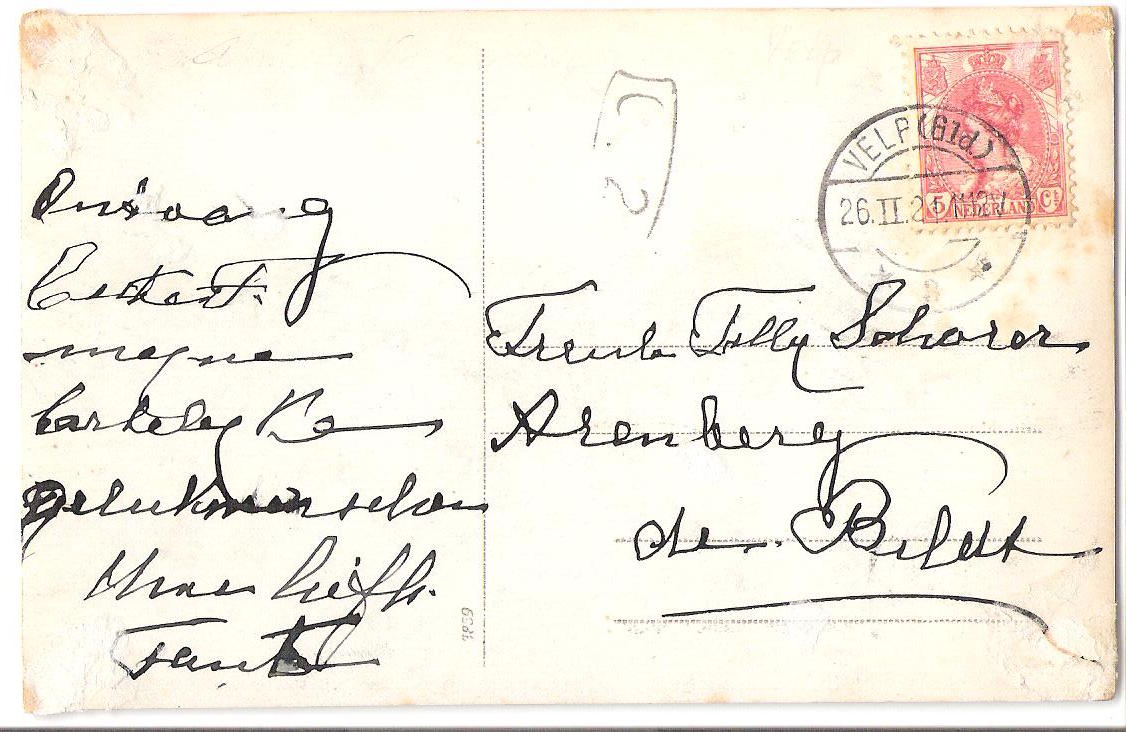 Ontvang
mejne
hartelyke
gelukwenschen
Uwe liefh.
Tante
7839
VELP (Gld)
26.II.21.
5 Ct
NEDERLAND
Freule Tilly Schorer
Arenberg
de Bildt